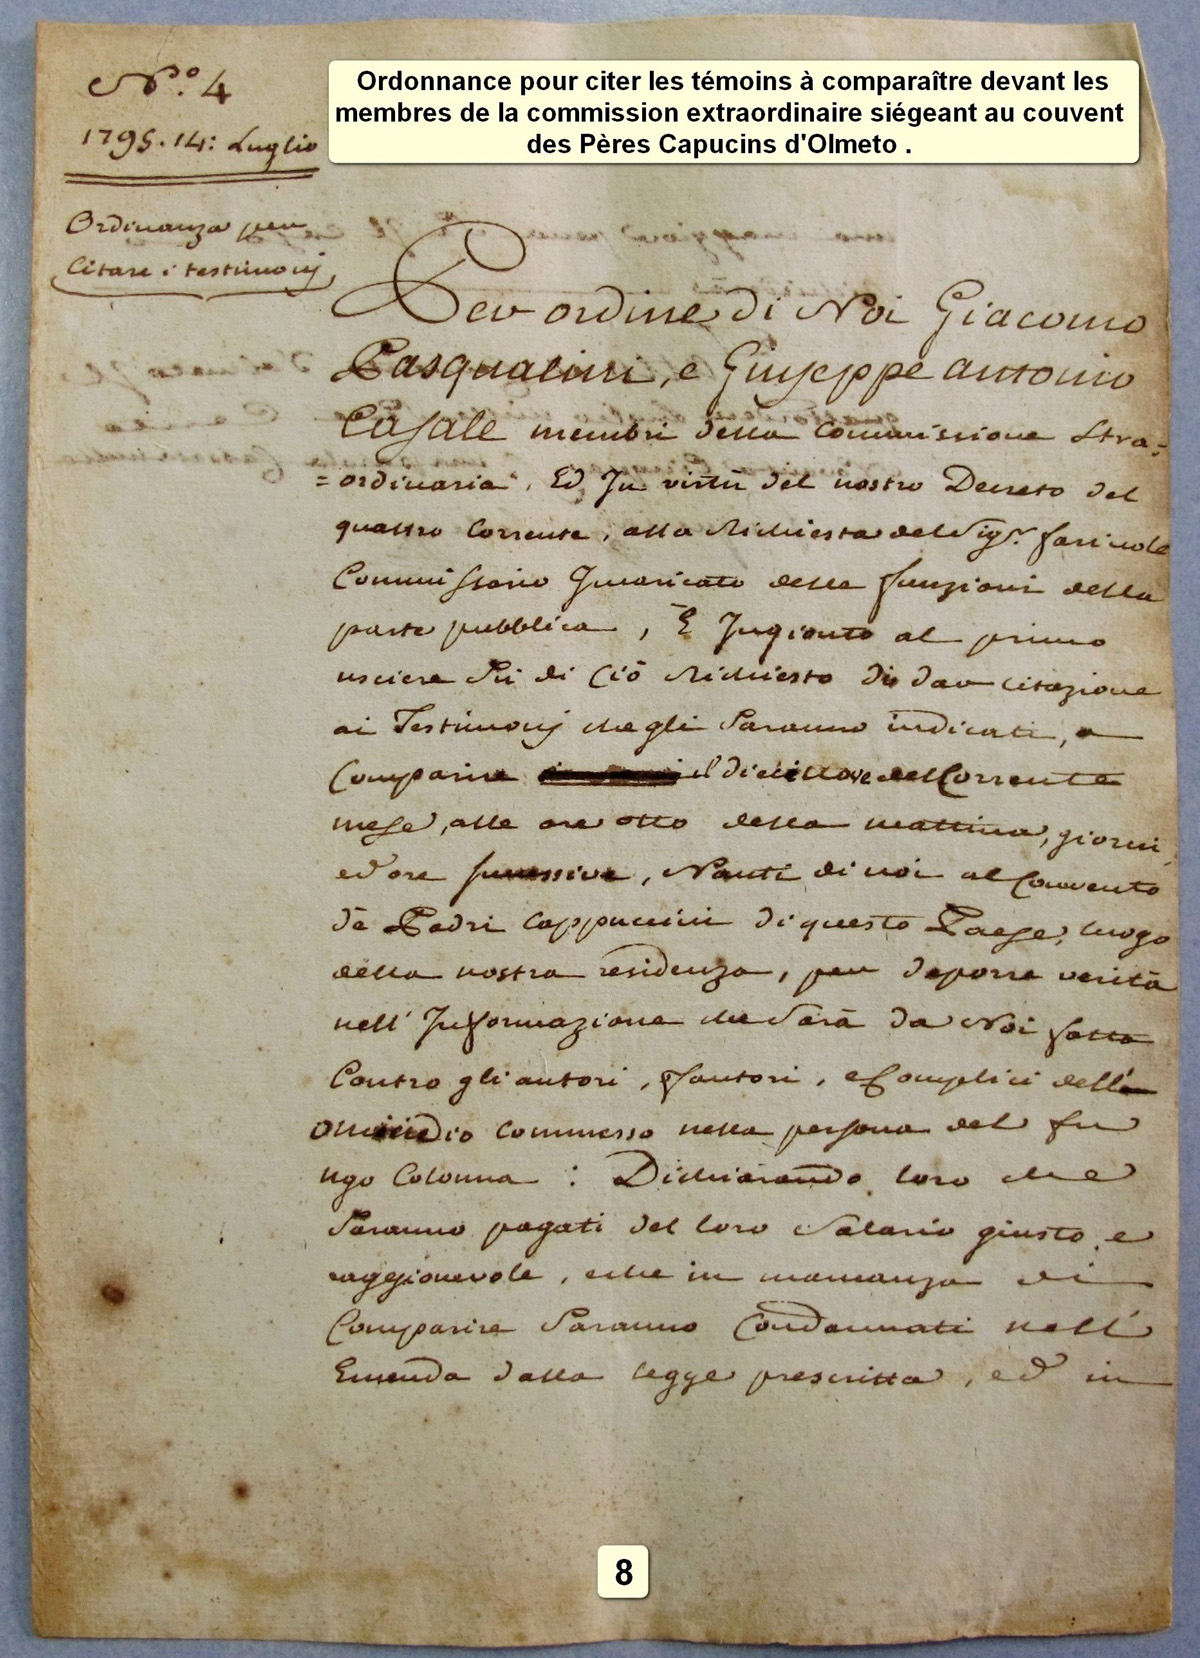 N.º 4
1795. 14: Luglio
Ordinanza per
Citare i testimonj
Ordonnance pour citer les témoins à comparaître devant les
membres de la commission extraordinaire siégeant au couvent
des Pères Capucins d'Olmeto .
Per ordine di Noi Giacomo
Pasqualini, e Giuseppe Antonio
Casale membri della Commissione Stra=
=ordinaria, Ed In virtù del nostro Decreto del
quattro Corrente, alla Richiesta del Sig.r
Commissario Incaricato delle funzioni della
parte pubblica, È Ingionto al primo
usciere Sù di Ciò Richiesto di dar citazione
ai Testimonj che gli Saranno indicati, a
Comparire il dieciotto del Corrente
mese, alle ore otto della mattina, giorni,
ed ore successive, Nanti di noi al Convento
dè Padri Cappuccini di questo Paese, luogo
della nostra residenza, per deporre verità
nell' Informazione che Sarà da Noi fatta
Contro gli autori, fautori, e Complici dell'
Omicidio commesso nella persona del fu
Ugo Colonna : Dichiarando loro che
Saranno pagati del loro Salario giusto, e
raggionevole, e che in mancanza di
Comparire Saranno Condannati nell'
Emenda dalla legge prescritta, ed in
8